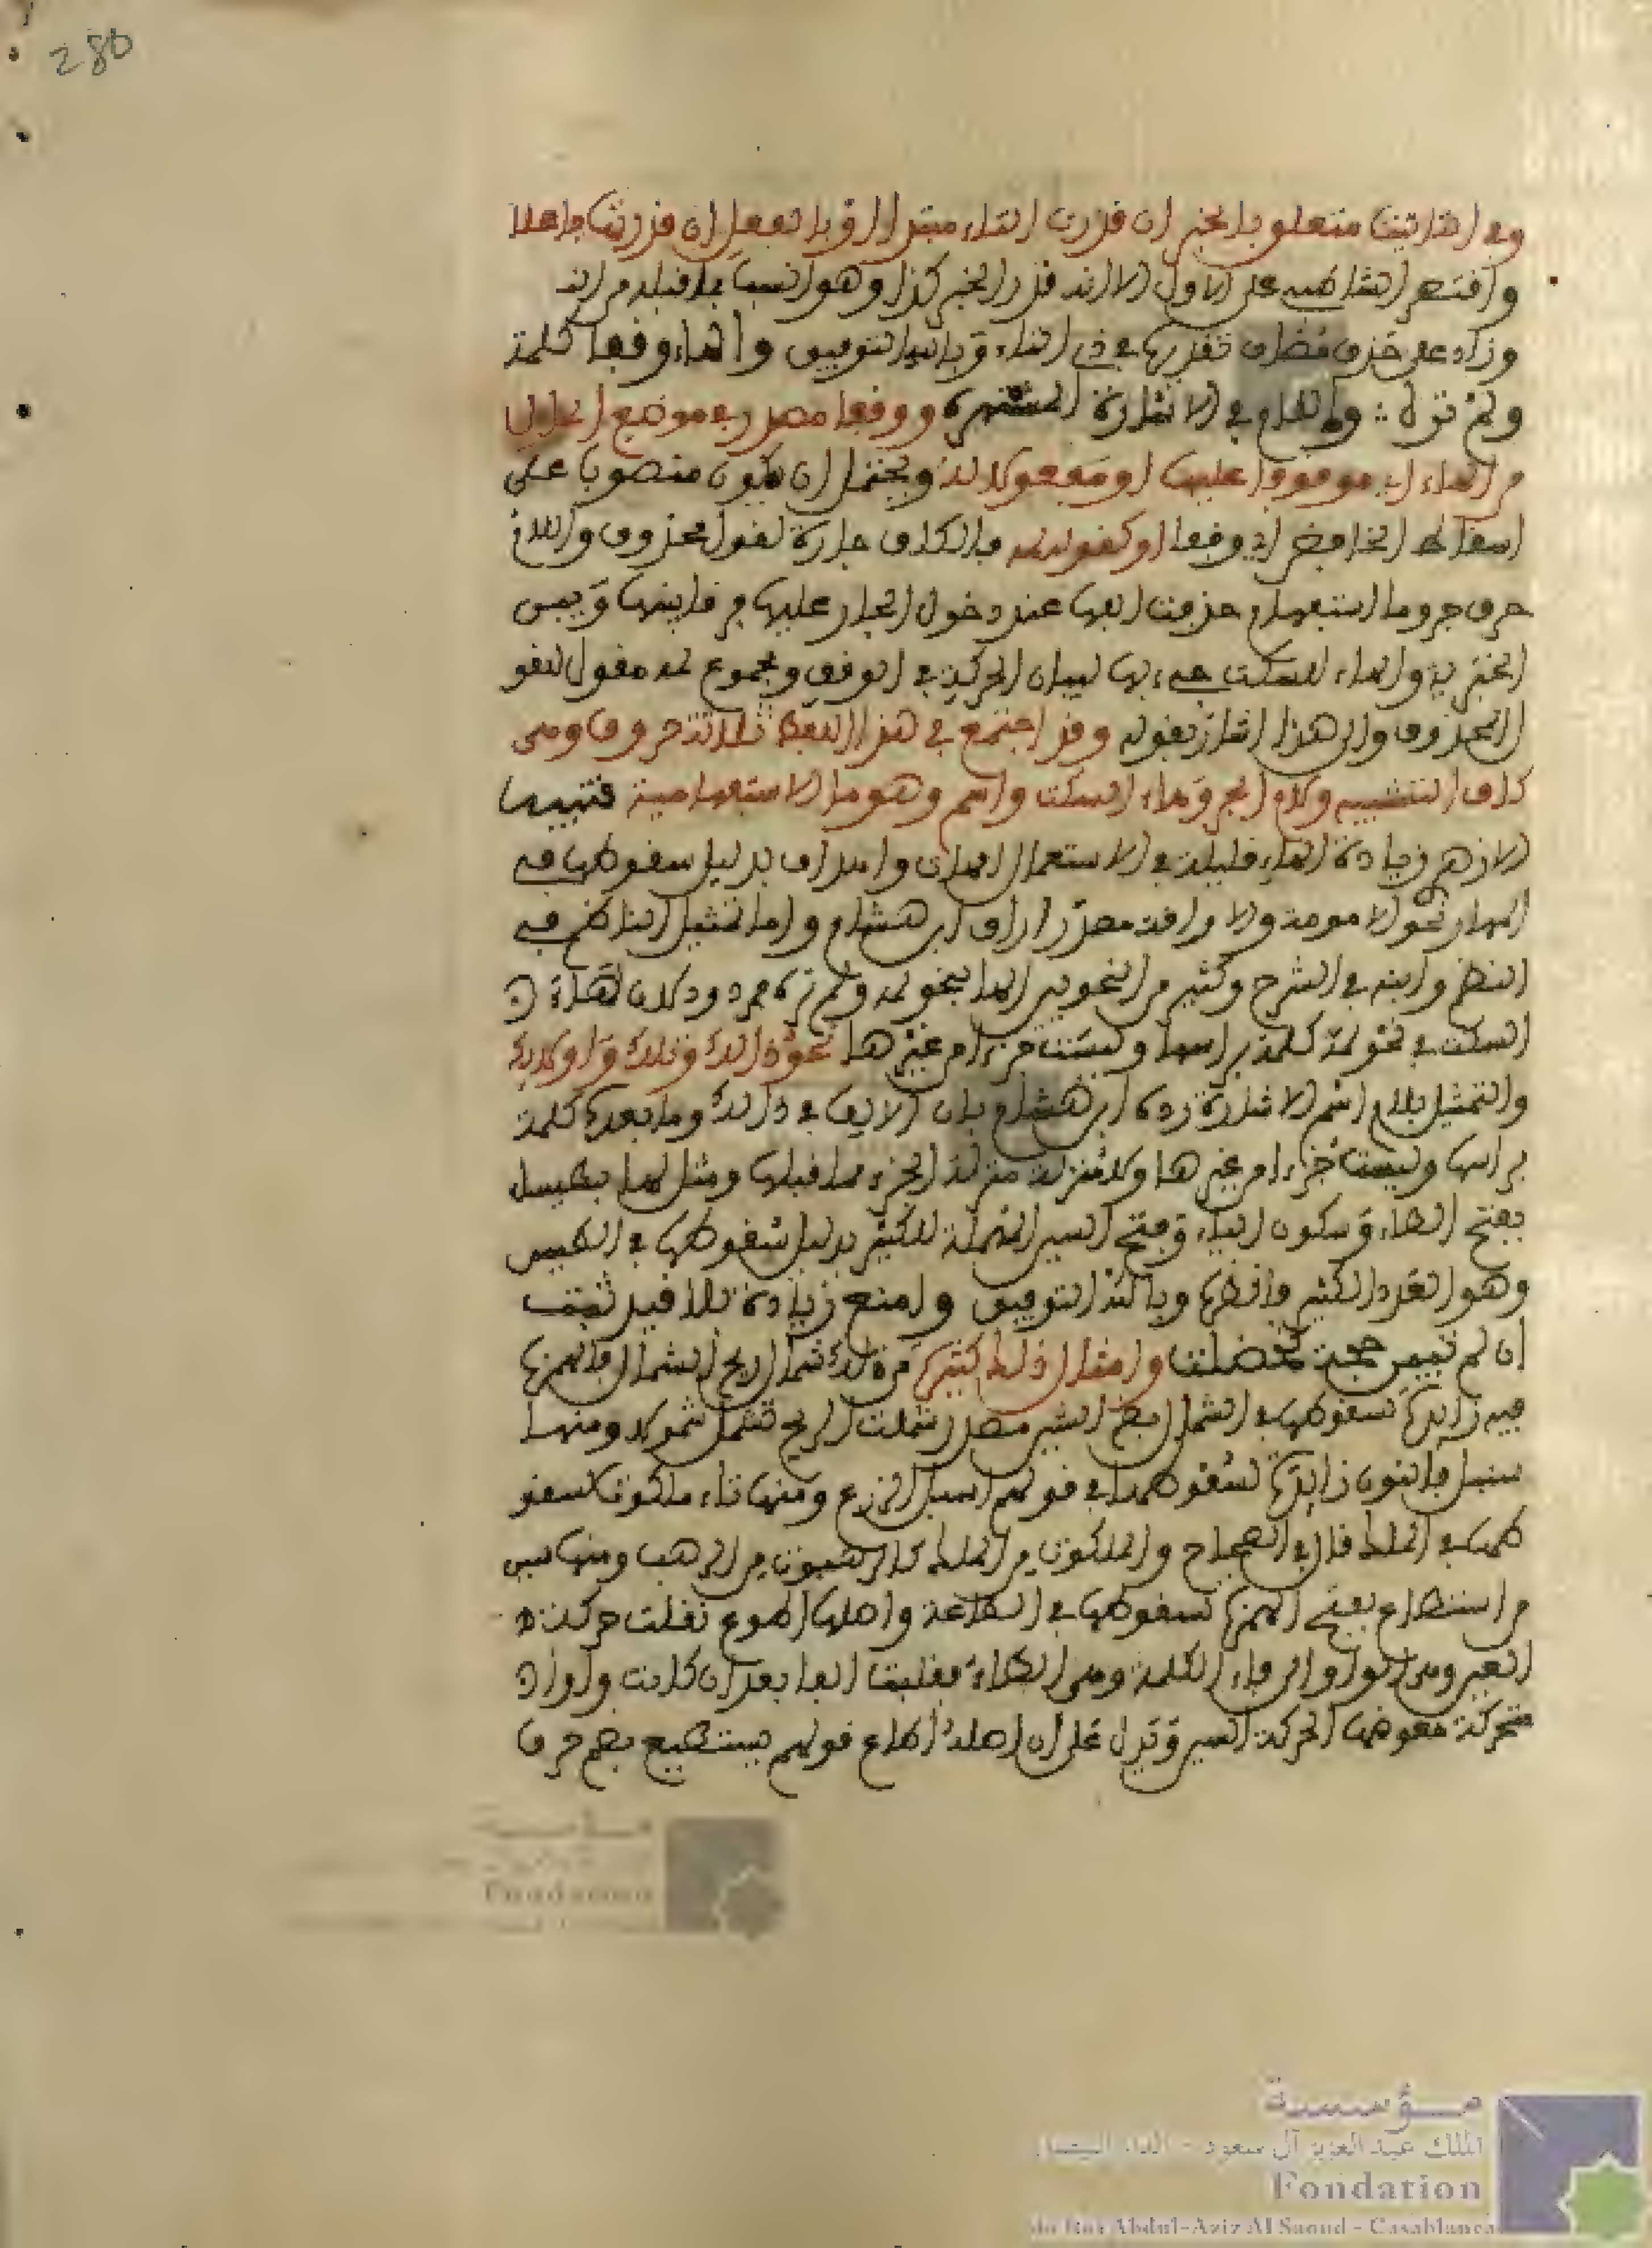 280
وفي الثاني متعلق بالخبر ان قدرت التاء مبتدا او بالفعل ان قدرتها فاعلا
واقتصر الشاطبي على الاول الا انه قدر الخبر كذا وهو انسب بما قبله من انه
وزاد على حذف مضاف تقديره في ذي التاء وبالله التوفيق والهاء وقفا كلمه
ولم تره واللام في الاشارة المشتهرة ووقفا مصدر في موضع الحال
من الهاء اي موقوفا عليها او مفعولا له ويحتمل ان يكون منصوبا على
اسقاط الخافض اي في وقف او كقوله لمه فالكاف جارة لقول محذوف واللام
حرف جر وما استفهام حذفت الفها عند دخول الجار عليها فرقا بينها وبين
الخبرية والهاء للسكت جيء بها لبيان الحركة في الوقف ومجموع لمه مقول للقو
المحذوف والى هذا اشار بقوله وقد اجتمع في هذا اللفظ ثلاثة حروف وهي
كاف التشبيه ولام الجر وهاء السكت واسم وهو ما الاستفهامية تنبيها
الازهر زيادة الهاء قليلة في الاستعمال امهات واهراق بدليل سقوطها في
نحو الامومة والاراقة مصدر اراق ابن هشام واما تمثيل الناظم في
النظم وابنه في الشرح وكثير من النحويين لها بنحو لمه ولم تره مردود لان هاء
السكت في نحو لمه كلمة براسها وليست جزءا من غيرها نحو ذلك وتلك واولالك
والتمثيل بلام اسم الاشارة رده ابن هشام بان الالف في ذلك وما بعده كلمة
براسها وليست جزءا من غيرها ولا منزلة منزلة الجزء مما قبلها ومثل لها بطيسل
بفتح الطاء وسكون الياء وفتح السين المهملة للكثير بدليل سقوطها في الطيس
وهو العدد الكثير وبالله التوفيق وامنع زيادة بلا قيد ثبت
ان لم تبين حجة كحظلت وامثال ذلك كثيرة من ذلك شمال لريح الشمال فالهمزة
فيه زائدة لسقوطها في الشمال بفتح الشين مصدر شملت الريح تشمل شمولا ومنها
سنبل فالنون زائدة لسقوطها في قولهم اسبل الزرع ومنها تاء ملكوت لسقو
طها في الملك قال في الصحاح والملكوت من الملك كالرهبوت من الرهب ومنها سين
من اسطاع بفتح الهمزة لسقوطها في الطاعة واصلها اطوع نقلت حركة
العين وهي الواو الى فاء الكلمة وهي الطاء فقلبت الفا بعد ان كانت واوا
متحركة فعوضها لحركة السين ويدل على ان اصله اطاع قولهم يسطيع بضم حرف
مؤسسة
الملك عبد العزيز آل سعود - الدار البيضاء
Fondation
du Roi Abdul-Aziz Al Saoud - Casablanca